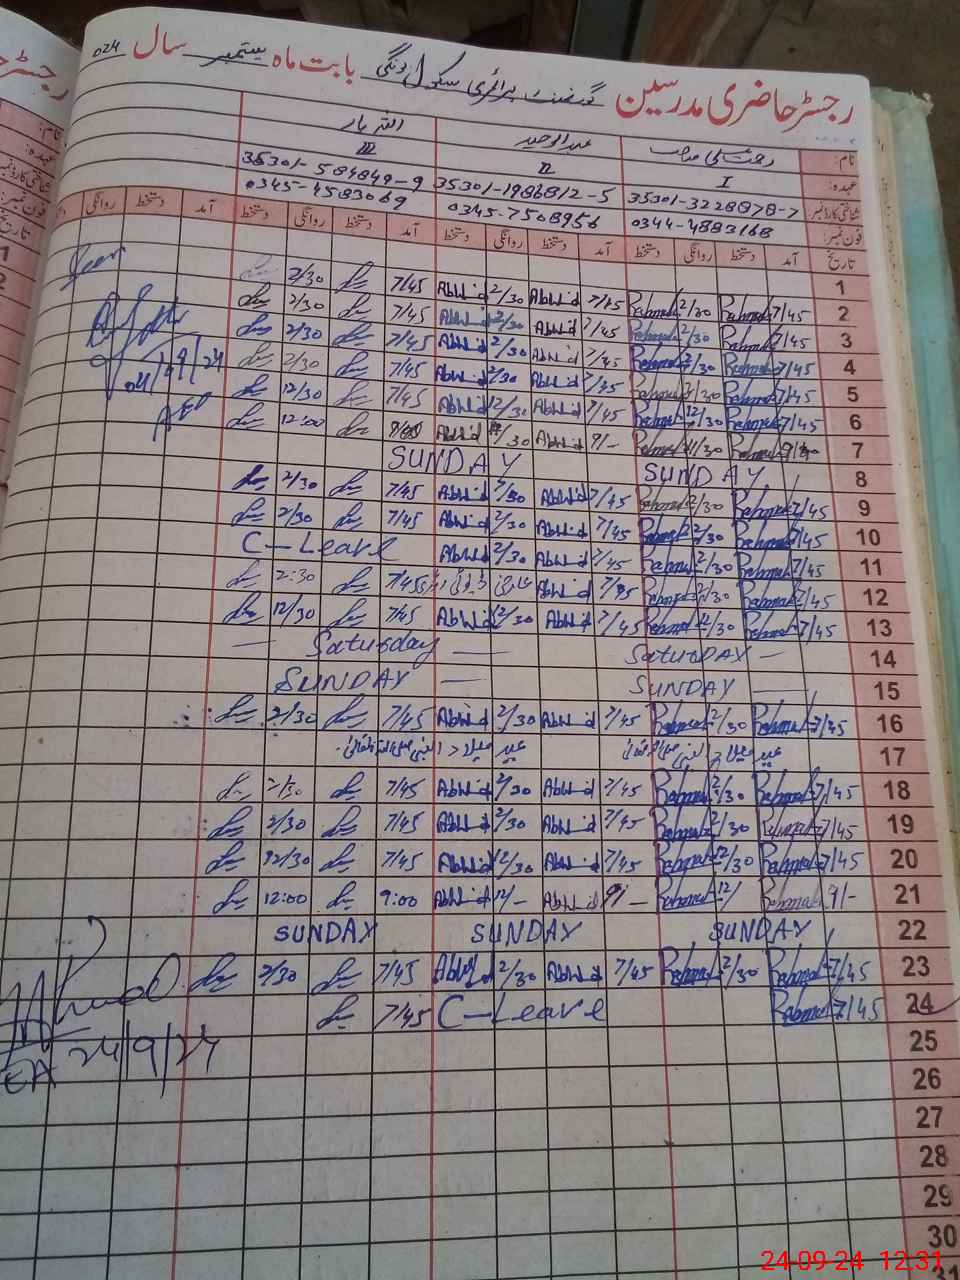 رجسٹر حاضری مدرسین گورنمنٹ پرائمری سکول بابت ماہ ستمبر سال 024
نام: رحمت علی صاحب عبدالوحید اللہ یار
عہدہ: I II III
شناختی کارڈ نمبر 35301-3228878-7 35301-1986812-5 35301-584849-9
فون نمبر: 0344-4883168 0345-7508956 0345-4583069
تاریخ آمد دستخط روانگی دستخط آمد دستخط روانگی دستخط آمد دستخط روانگی دستخط آمد دستخط روانگی
1
2 7/45 Rehmat 2/30 Rehmat 7/45 AbWid 2/30 AbWid 7/45 2/30
3 7/45 Rehmat 2/30 Rehmat 7/45 AbWid 2/30 AbWid 7/45 2/30
4 7/45 Rehmat 2/30 Rehmat 7/45 AbWid 2/30 AbWid 7/45 2/30
5 7/45 Rehmat 2/30 Rehmat 7/45 AbWid 2/30 AbWid 7/45 2/30
6 7/45 Rehmat 12/30 Rehmat 7/45 AbWid 12/30 AbWid 7/45 12/30
7 Rehmat Rehmat 9/- AbWid AbWid 12:00
8 SUNDAY SUNDAY
9 7/45 Rehmat 2/30 Rehmat 7/45 AbWid 2/30 AbWid 7/45 2/30
10 7/45 Rehmat 2/30 Rehmat 7/45 AbWid 2/30 AbWid 7/45 2/30
11 7/45 Rehmat 2/30 Rehmat 7/45 AbWid 2/30 AbWid C-Leave
12 7/45 Rehmat 2/30 Rehmat 7/45 AbWid 7/45 2:30
13 7/45 Rehmat 12/30 Rehmat 7/45 AbWid 12/30 AbWid 7/45 12/30
14 Saturday — — Saturday —
15 SUNDAY — SUNDAY —
16 7/45 Rehmat 2/30 Rehmat 7/45 AbWid 2/30 AbWid 7/45 2/30
17 عید میلاد النبی عید میلاد النبی
18 7/45 Rehmat 2/30 Rehmat 7/45 AbWid 2/30 AbWid 7/45 2/30
19 7/45 Rehmat 2/30 Rehmat 7/45 AbWid 2/30 AbWid 7/45 2/30
20 7/45 Rehmat 12/30 Rehmat 7/45 AbWid 12/30 AbWid 7/45 12/30
21 9/- Rehmat 12/ Rehmat 9/- AbWid 12/- AbWid 9:00 12:00
22 SUNDAY SUNDAY SUNDAY
23 7/45 Rehmat 2/30 Rehmat 7/45 AbWid 2/30 AbWid 7/45 2/30
24 7/45 Rehmat C-Leave 7/45
25
26
27
28
29
30
31
04/09/24
AEO
24/9/24
24-09-24 12:31